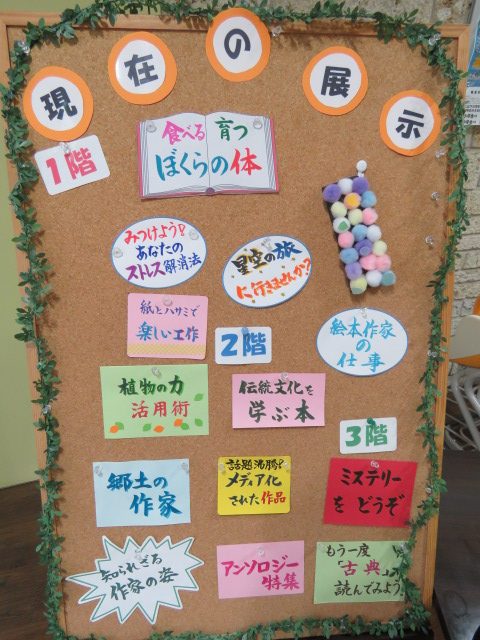 現在の展示
1階
食べる 育つ
ぼくらの体
みつけよう!
あなたの
ストレス解消法
星空の旅
に行きませんか?
紙とハサミで
楽しい工作
2階
絵本作家
の
仕事
植物の力
活用術
伝統文化を
学ぶ本
3階
郷土の
作家
話題沸騰!
メディア化
された作品
ミステリー
を どうぞ
知られざる
作家の姿
アンソロジー
特集
もう一度
「古典」
読んでみよう